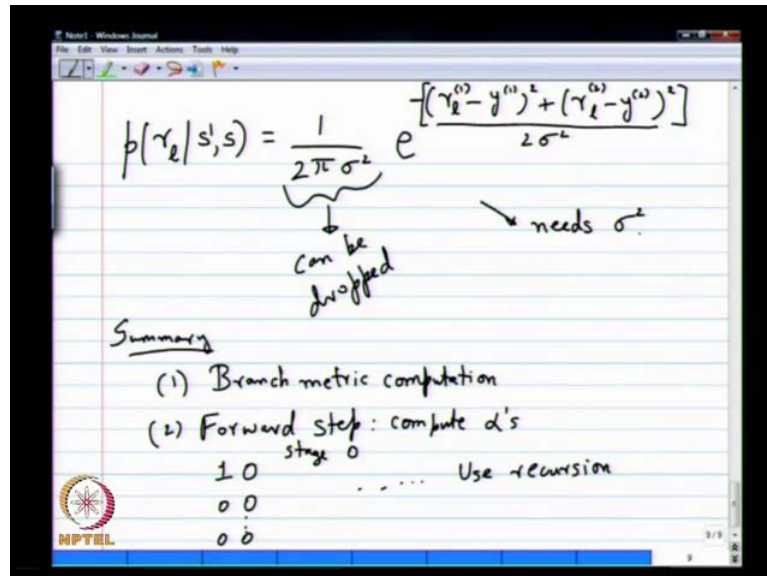 Note1 - Windows Journal
File Edit View Insert Actions Tools Help
p(r_ℓ | s', s) = 1 / (2πσ²) e^{-[(r_ℓ^{(1)} - y^{(1)})² + (r_ℓ^{(2)} - y^{(2)})²] / 2σ²}
can be dropped
needs σ².
Summary
(1) Branch metric computation
(2) Forward step : compute α's
stage 0
1 0 ..... Use recursion
0 0
⋮
0 0
NPTEL
9/9
9